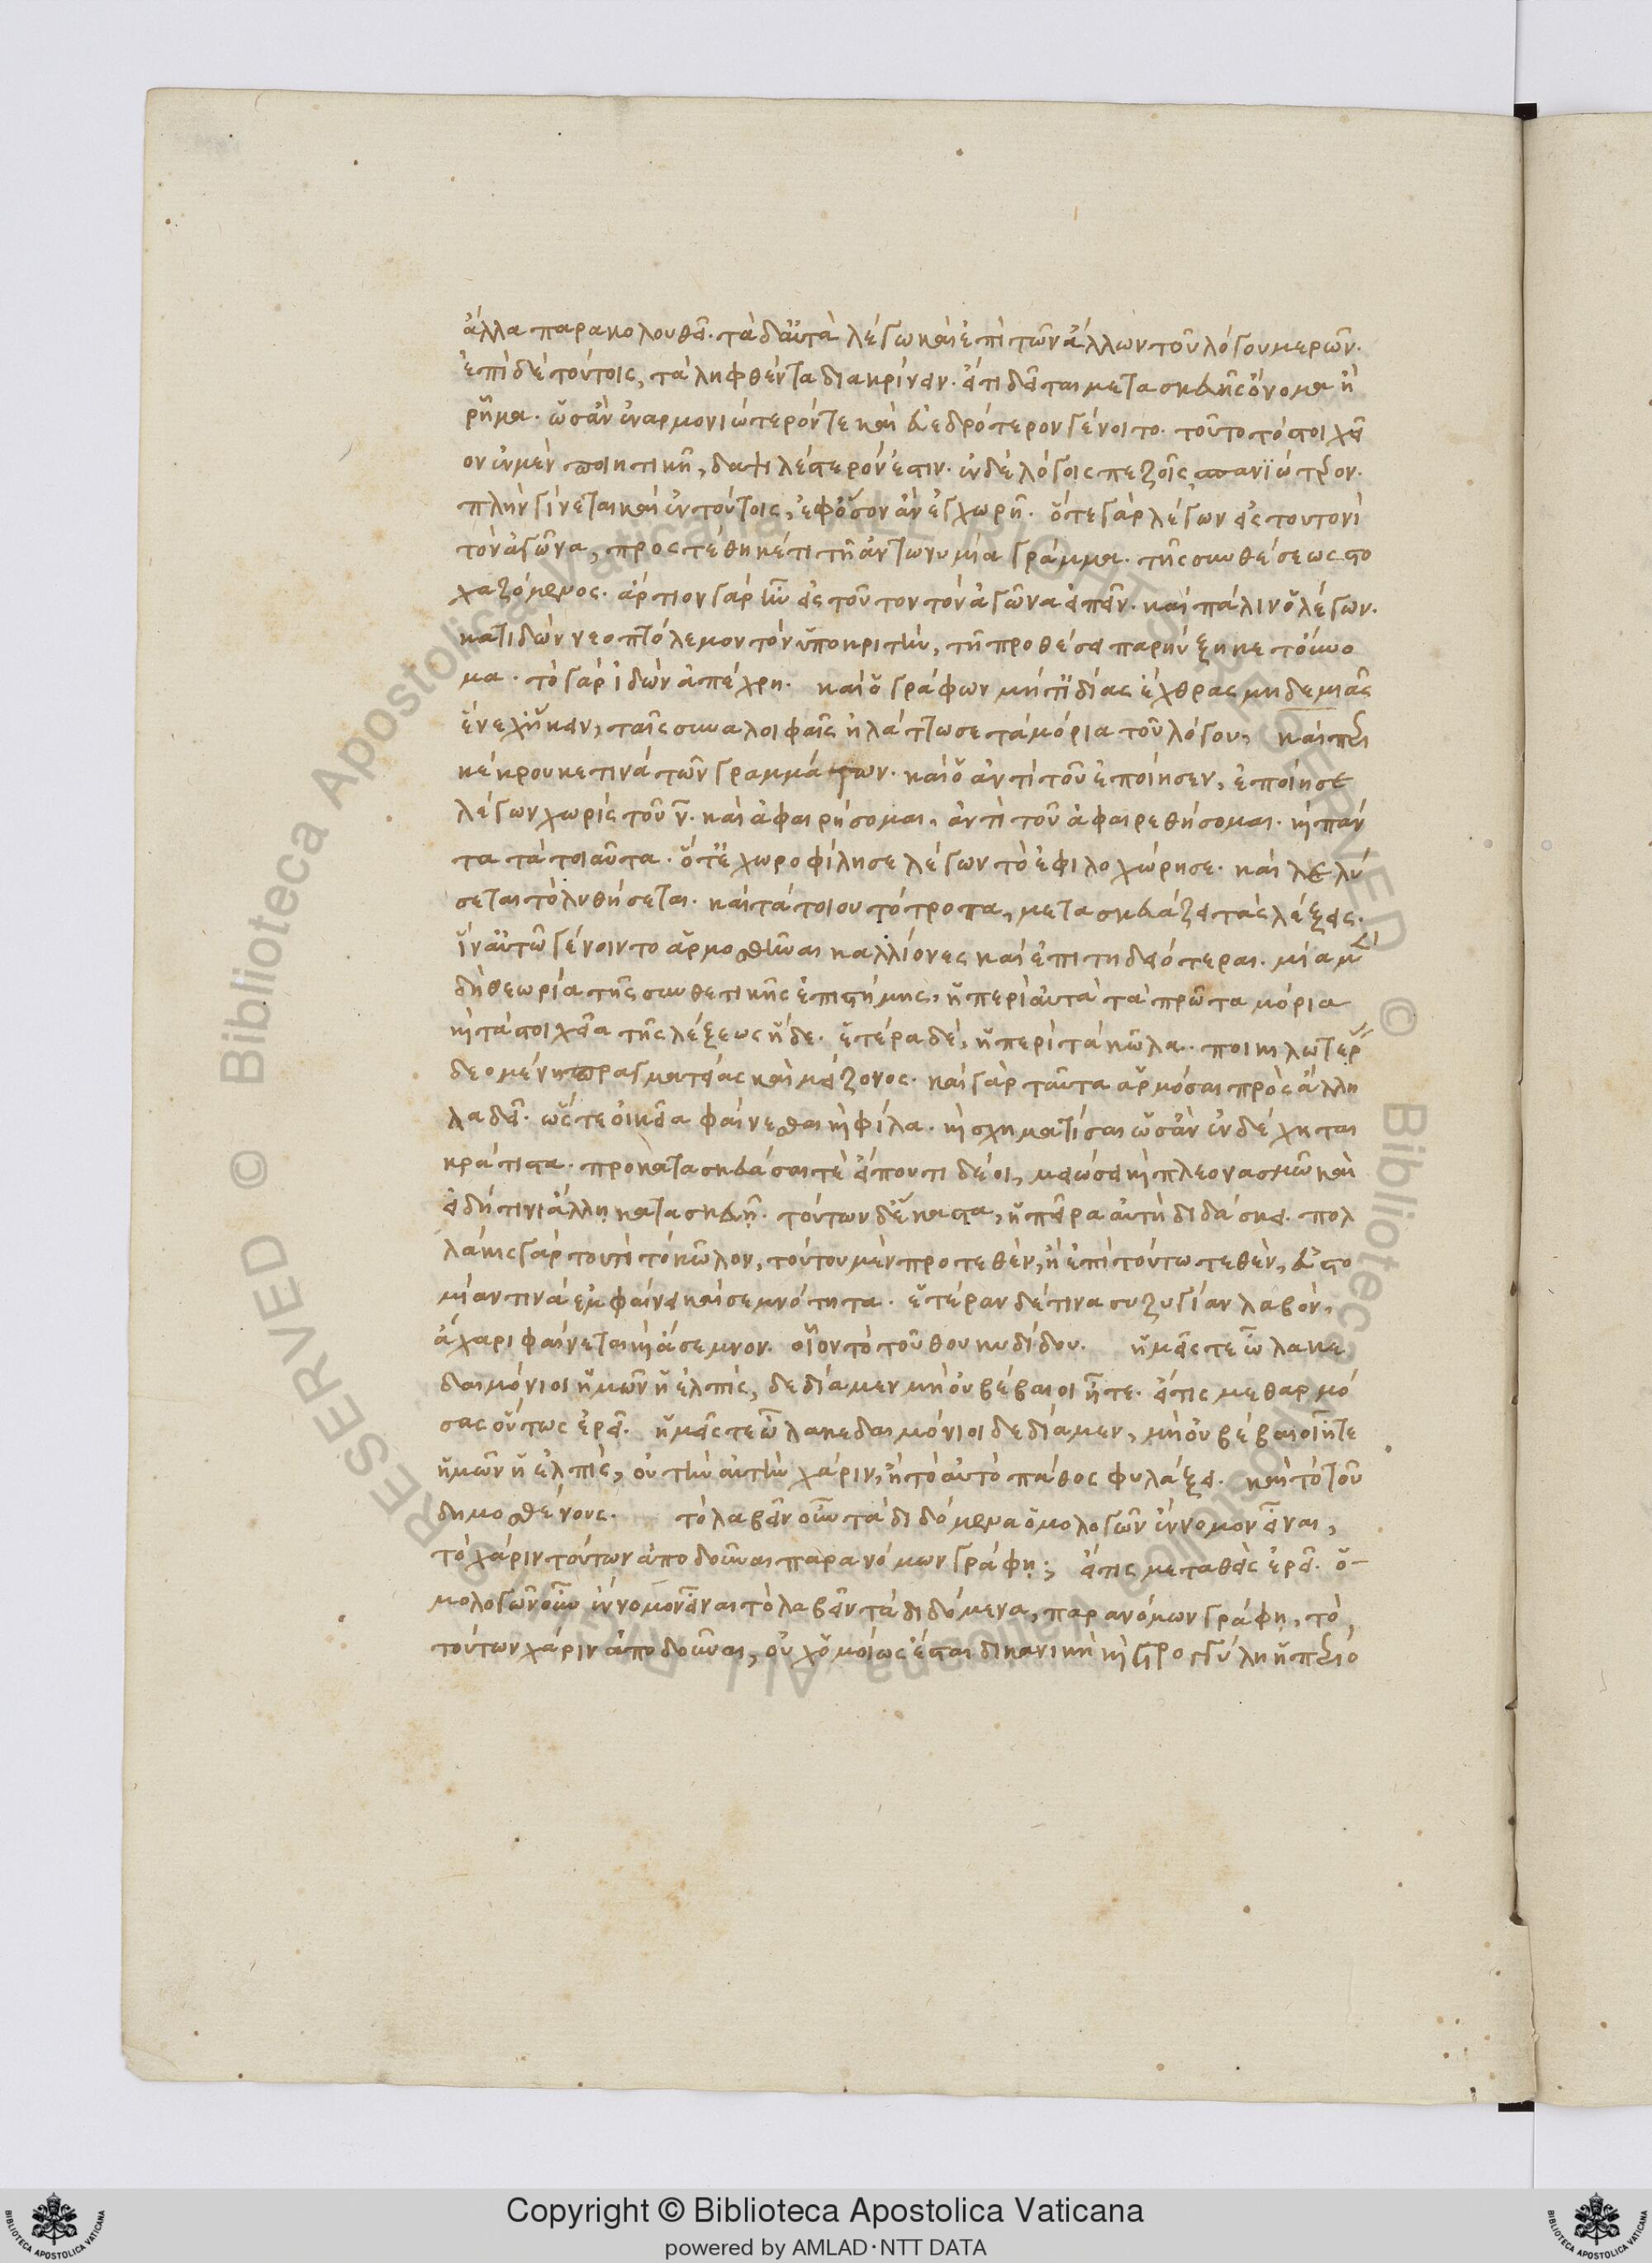 ἄλλα παρακολουθεῖ. τὰ δ' αὐτὰ λέγω καὶ ἐπὶ τῶν ἄλλων τοῦ λόγου μερῶν.
ἐπὶ δὲ τούτοις, τὰ ληφθέντα διακρίνειν. εἴ τι δεῖται μετασκευῆς ὄνομα ἢ
ῥῆμα. ὡς ἂν ἐναρμονιώτερόν τε καὶ εὐεδρότερον γένοιτο. τοῦτο τὸ στοιχεῖ
ον ἐν μὲν ποιητικῇ, δαψιλέστερόν ἐστιν. ἐν δὲ λόγοις πεζοῖς, σπανιώτερον.
πλὴν γίνεται καὶ ἐν τούτοις, ἐφ' ὅσον ἂν ἐγχωρῇ. ὅ τε γὰρ λέγων εἰς τουτονὶ
τὸν ἀγῶνα, προστέθηκέ τι τῇ ἀντωνυμίᾳ γράμμα. τῆς συνθέσεως στο
χαζόμενος. ἄρτιον γὰρ ἦν εἰς τοῦτον τὸν ἀγῶνα εἰπεῖν. καὶ πάλιν ὁ λέγων.
κατιδὼν νεοπτόλεμον τὸν ὑποκριτὴν, τῇ προθέσει παρηύξηκε τὄυνο
μα. τὸ γὰρ ἰδὼν ἀπέχρη. καὶ ὁ γράφων μήτ' ἰδίας ἔχθρας μηδεμιᾶς
ἕνεχ' ἥκειν, ταῖς συναλοιφαῖς ἠλάττωσε τὰ μόρια τοῦ λόγου, καὶ περι
κέκρουκέ τινα τῶν γραμμάτων. καὶ ὁ ἀντὶ τοῦ ἐποίησεν, ἐποίησε
λέγων χωρὶς τοῦ ν. καὶ ἀφαιρήσομαι, ἀντὶ τοῦ ἀφαιρεθήσομαι. καὶ πάν
τα τὰ τοιαῦτα. ὅ τ' ἐχωροφίλησε λέγων τὸ ἐφιλοχώρησε. καὶ λελύ
σεται τὸ λυθήσεται. καὶ τὰ τοιουτότροπα, μετασκευάζει τὰς λέξεις.
ἵν' αὐτῷ γένοιντο ἁρμοσθῆναι καλλίονες καὶ ἐπιτηδειότεραι. μία μὲν
δὴ θεωρία τῆς συνθετικῆς ἐπιστήμης, ἡ περὶ αὐτὰ τὰ πρῶτα μόρια
καὶ τὰ στοιχεῖα τῆς λέξεως ἥδε. ἑτέρα δὲ, ἡ περὶ τὰ κῶλα. ποικιλωτέρας
δεομένη πραγματείας καὶ μείζονος. καὶ γὰρ ταῦτα ἁρμόσαι πρὸς ἄλλη
λα δεῖ. ὥστε οἰκεῖα φαίνεσθαι καὶ φίλα. καὶ σχηματίσαι ὡς ἂν ἐνδέχηται
κράτιστα. προκατασκευάσαι τὲ εἴ που τι δέοι, μειώσει καὶ πλεονασμῷ καὶ
εἰ δή τινι ἄλλῃ κατασκευῇ. τούτων δ' ἕκαστα, ἡ πεῖρα αὐτὴ διδάσκει. πολ
λάκις γὰρ τουτὶ τὸ κῶλον, τούτου μὲν προτεθὲν, ἢ ἐπὶ τούτῳ τεθὲν, εὐστο
μίαν τινὰ ἐμφαίνει καὶ σεμνότητα. ἑτέραν δέ τινα συζυγίαν λαβὸν,
ἄχαρι φαίνεται καὶ ἄσεμνον. οἷον τὸ τοῦ θουκυδίδου. ὑμεῖς τε ὦ λακε
δαιμόνιοι ἡμῶν ἡ ἐλπὶς, δεδίαμεν μὴ οὐ βέβαιοι ἦτε. εἴ τις μεθαρμό
σας οὕτως ἐρεῖ. ὑμεῖς τε ὦ λακεδαιμόνιοι δεδίαμεν, μὴ οὐ βέβαιοι ἦτε
ἡμῶν ἡ ἐλπὶς, οὐ τὴν αὐτὴν χάριν, ἢ τὸ αὐτὸ πάθος φυλάξει. καὶ τὸ τοῦ
δημοσθένους. τὸ λαβεῖν οὖν τὰ διδόμενα ὁμολογῶν ἔννομον εἶναι,
τὸ χάριν τούτων ἀποδοῦναι παρανόμων γράφῃ; εἴ τις μεταθεὶς ἐρεῖ. ὁ-
μολογῶν οὖν ἔννομον εἶναι τὸ λαβεῖν τὰ διδόμενα, παρανόμων γράφῃ, τὸ
τούτων χάριν ἀποδοῦναι, οὐχ' ὁμοίως ἔσται δικανικὴ καὶ στρογγύλη ἡ περίο